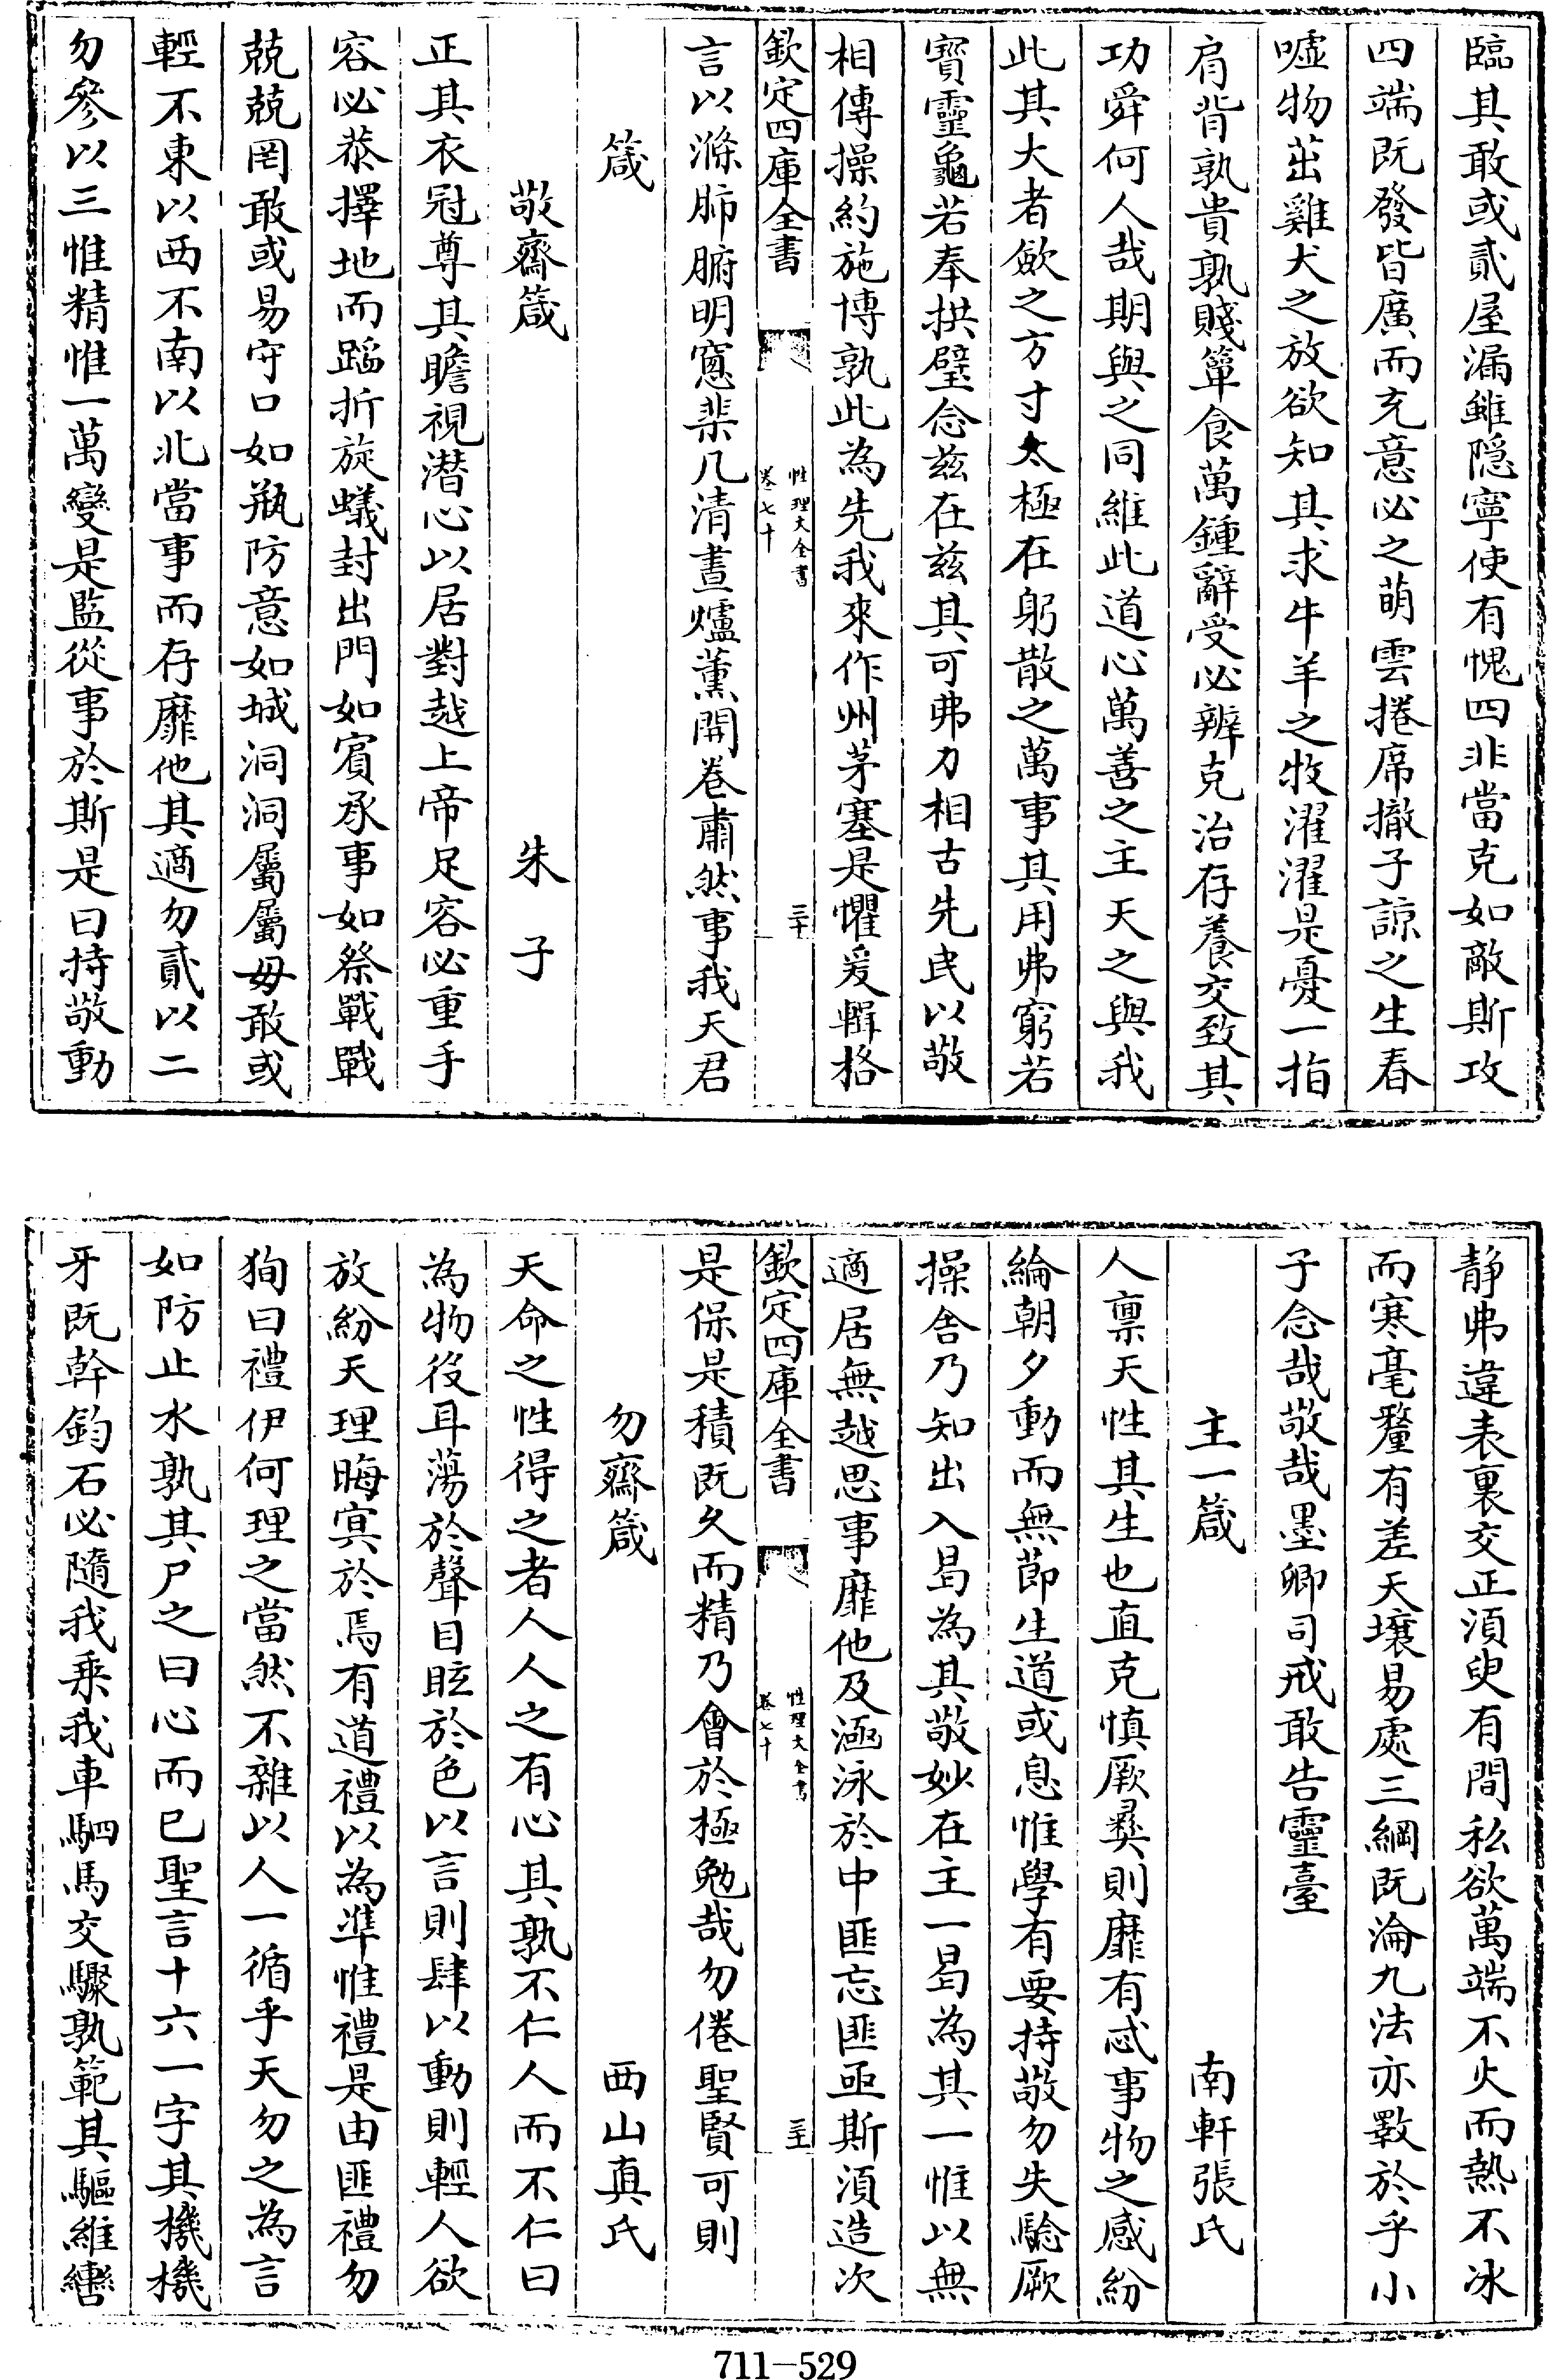 臨其敢或貳屋漏雖隐寧使有愧四非當克如敵斯攻
四端既發皆廣而充意必之萌雲捲席撤子諒之生春
噓物茁雞犬之放欲知其求牛羊之牧濯濯是憂一指
肩背孰貴孰賤簞食萬鍾辭受必辨克治存養交致其
功舜何人哉期與之同維此道心萬善之主天之與我
此其大者歛之方寸太極在躬散之萬事其用弗窮若
寳靈龜若奉拱璧念兹在兹其可弗力相古先民以敬
相傳操約施博孰此為先我來作州茅塞是懼爰輯格
欽定四庫全書
性理大全書
卷七十
三十
言以滌肺腑明窻棐几清晝爐薰開卷肅然事我天君
箴
敬齋箴 朱子
正其衣冠尊其瞻視潜心以居對越上帝足容必重手
容必恭擇地而蹈折旋蟻封出門如賓承事如祭戰戰
兢兢罔敢或易守口如瓶防意如城洞洞屬屬毋敢或
輕不東以西不南以北當事而存靡他其適勿貳以二
勿參以三惟精惟一萬變是監從事於斯是曰持敬動
静弗違表裏交正須臾有間私欲萬端不火而熱不冰
而寒毫釐有差天壤易處三綱既淪九法亦斁於乎小
子念哉敬哉墨卿司戒敢告靈臺
主一箴 南軒張氏
人禀天性其生也直克慎厥彞則靡有忒事物之感紛
綸朝夕動而無節生道或息惟學有要持敬勿失驗厥
操舍乃知出入曷為其敬妙在主一曷為其一惟以無
適居無越思事靡他及涵泳於中匪忘匪亟斯須造次
欽定四庫全書
性理大全書
卷七十
三十一
是保是積既久而精乃會於極勉哉勿倦聖賢可則
勿齋箴 西山真氏
天命之性得之者人人之有心其孰不仁人而不仁曰
為物役耳蕩於聲目眩於色以言則肆以動則輕人欲
放紛天理晦冥於焉有道禮以為凖惟禮是由匪禮勿
狥曰禮伊何理之當然不雜以人一循乎天勿之為言
如防止水孰其尸之曰心而已聖言十六一字其機機
牙既幹鈞石必隨我乘我車駟馬交驟孰範其驅維轡
711—529